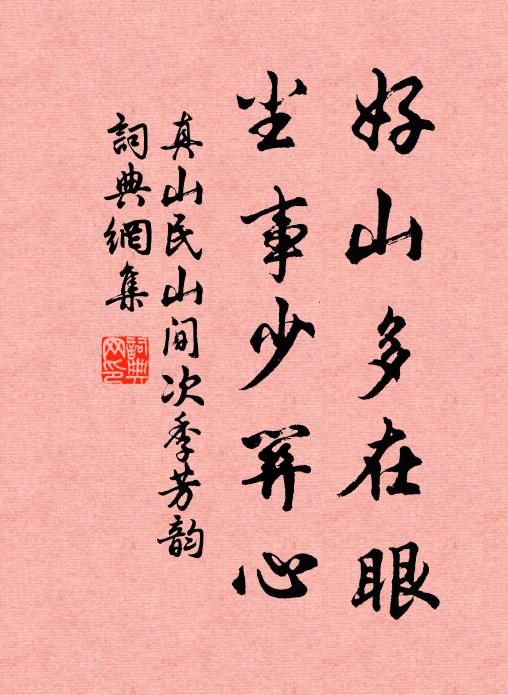 好山多在眼
尘事少关心
真山民山间次季芳韵
詞典網集
詞典
网印